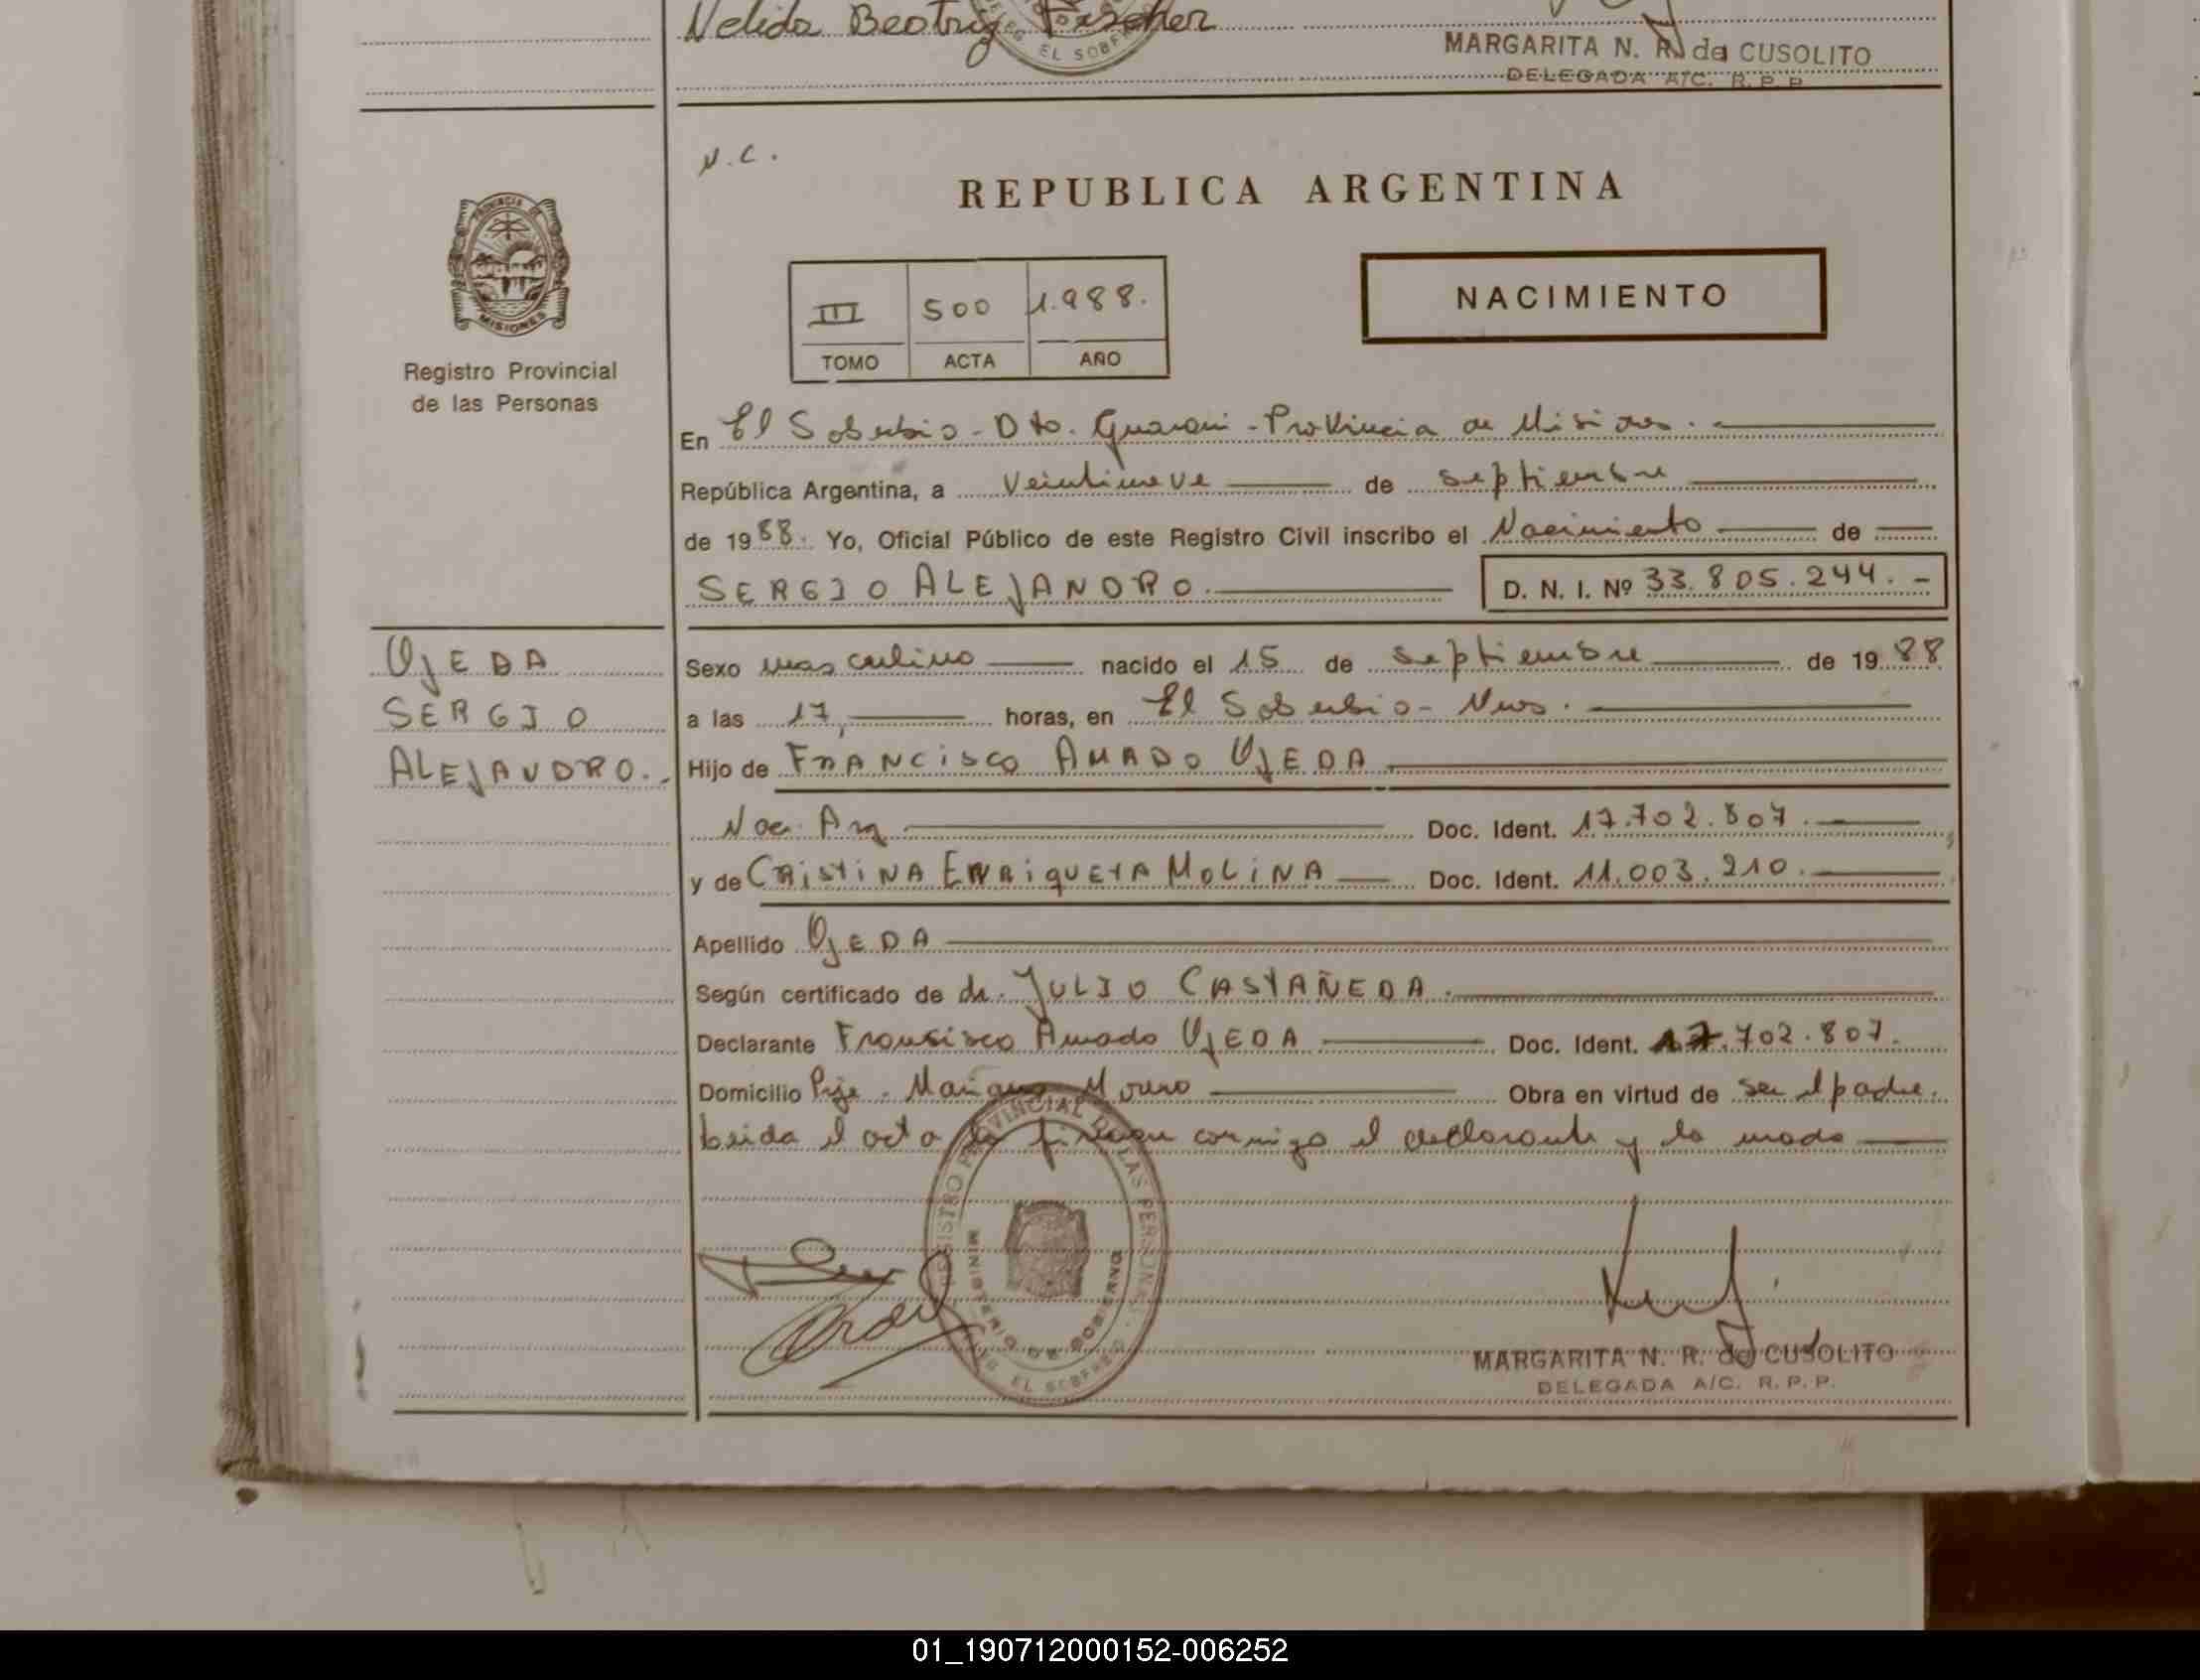 Nelida Beatriz
MARGARITA N. R. de CUSOLITO
DELEGADA A/C. R. P. P.
N.C.
REPUBLICA ARGENTINA
PROVINCIA DE
MISIONES
Registro Provincial
de las Personas
III 500 1.988.
TOMO ACTA AÑO
NACIMIENTO
En El Soberbio - Dto. Guarani - Provincia de Misiones.
República Argentina, a veintinueve de septiembre
de 1988. Yo, Oficial Público de este Registro Civil inscribo el Nacimiento de
SERGIO ALEJANDRO. D. N. I. Nº 33.805.244. -
OJEDA
SERGIO
ALEJANDRO.-
Sexo masculino nacido el 15 de septiembre de 1988
a las 17, horas, en El Soberbio - Mnes.
Hijo de FRANCISCO AMADO OJEDA
Nac. Arg Doc. Ident. 17.702.807.
y de CRISTINA ENRIQUETA MOLINA Doc. Ident. 11.003.210.
Apellido OJEDA
Según certificado de dr. JULIO CASTAÑEDA.
Declarante Francisco Amado OJEDA Doc. Ident. 17.702.807.
Domicilio Pje. Mariano Moreno Obra en virtud de ser el padre.
Leida el acta la firman conmigo el declarante y la madre
REGISTRO PROVINCIAL DE LAS PERSONAS
MINISTERIO DE GOBIERNO
EL SOBERBIO
MARGARITA N. R. de CUSOLITO
DELEGADA A/C. R. P. P.
01_190712000152-006252